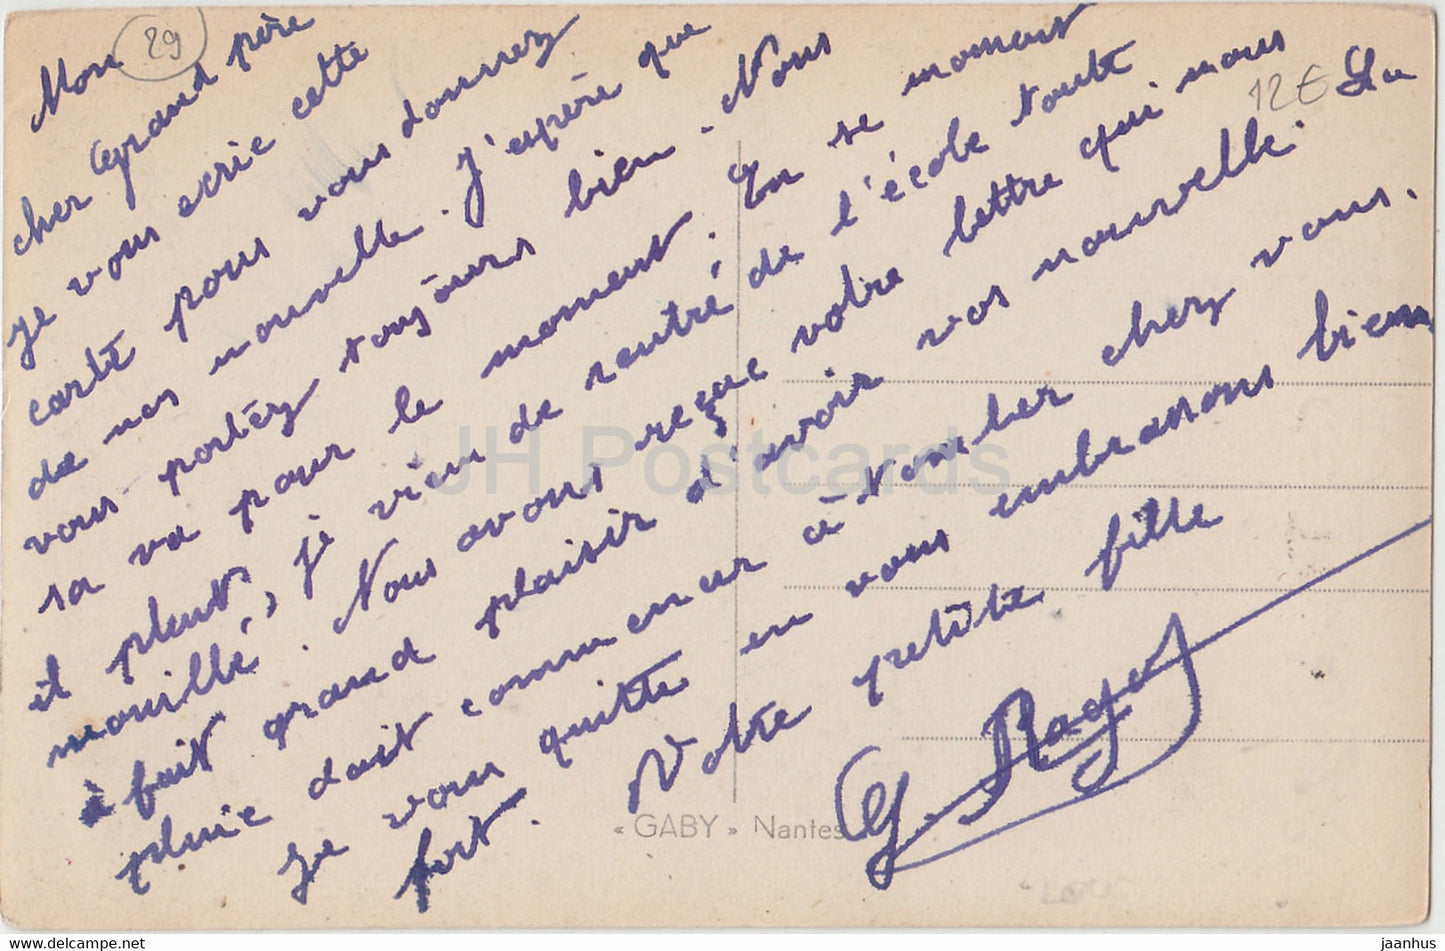 Mon
cher Grand père
je vous ecrie cette
carte pour vous donnez
de nos nouvelle. J'espère que
vous portéz toujours bien. Nous
sa va pour le moment. En se moment
il pleut, je vien de rentré de l'école toute
mouillé. Nous avons reçue votre lettre qui nous
à fait grand plaisir d'avoir vos nouvelle. La
pluie doit commencer à tomber chez vous.
Je vous quitte en vous embrasons bien
fort. Votre petite fille
G. Ragot
29
12 €
« GABY » Nantes
JH Postcards
https://www.delcampe.net
jaanhus